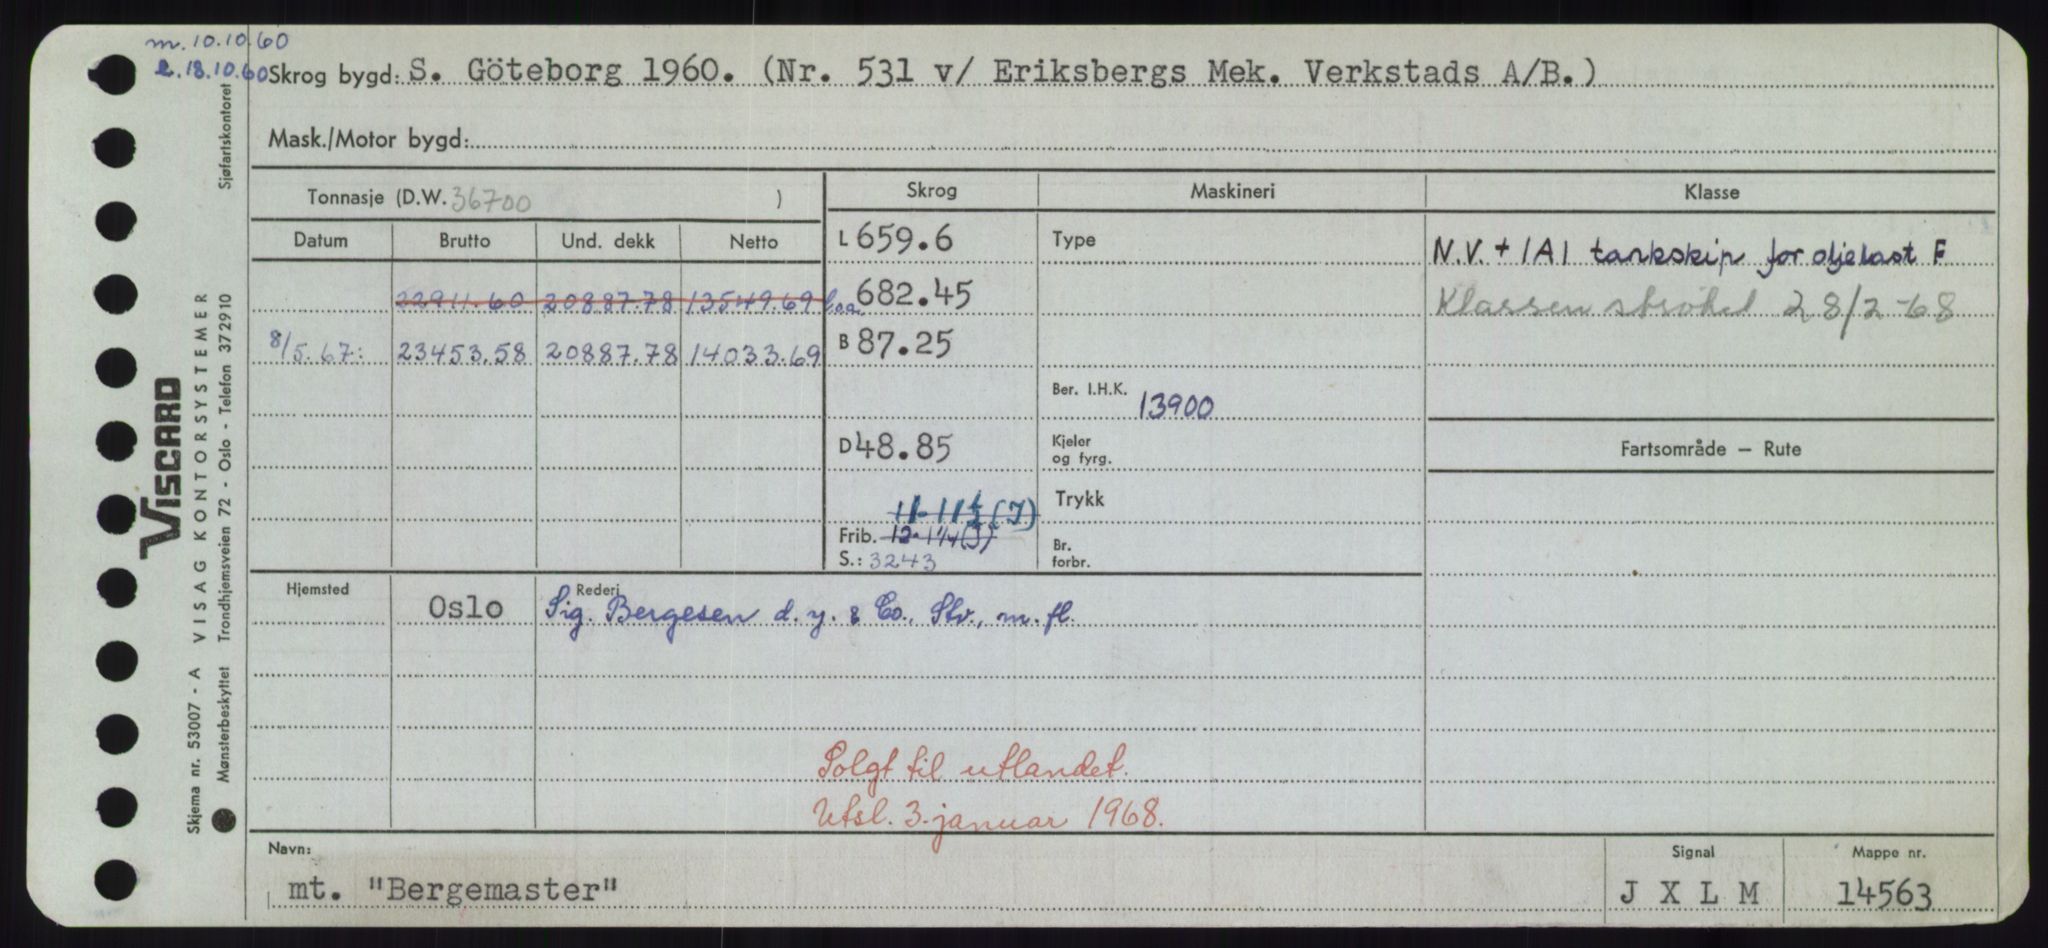 m. 10.10.60
l. 18.10.60
Skrog bygd: S. Göteborg 1960. (Nr. 531 v/ Eriksbergs Mek. Verkstads A/B.)
Mask./Motor bygd:
Tonnasje (D.W. 36700 )
Skrog Maskineri Klasse
Datum Brutto Und. dekk Netto
L 659.6 Type
N.V. + 1A1 tankskip for oljelast F
22911.60 20887.78 13549.69 loa 682.45
Klassen strøket 28/2-68
8/5.67: 23453.58 20887.78 14033.69 B 87.25
Ber. I.H.K. 13900
D 48.85 Kjeler og fyrg.
Fartsområde — Rute
11-11½(I) Trykk
Frib. 12-1¼(I)
S.: 3243
Br. forbr.
Hjemsted Rederi
Oslo Sig. Bergesen d.y. & Co., Stv., m. fl.
Solgt til utlandet.
Utsl. 3. januar 1968.
Navn: Signal Mappe nr.
mt. "Bergemaster" J X L M 14563
Skjema nr. 53007 - A VISAG KONTORSYSTEMER
Mønsterbeskyttet Trondhjemsveien 72 - Oslo - Telefon 372910 Sjøfartskontoret
VISCARD